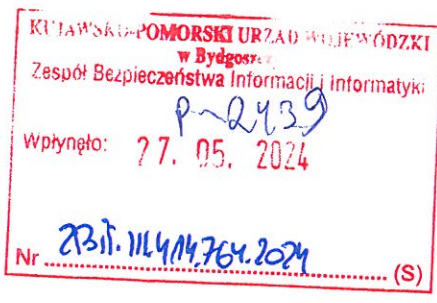 KUJAWSKO-POMORSKI URZĄD WOJEWÓDZKI
w Bydgoszczy
Zespół Bezpieczeństwa Informacji i Informatyki
P-2439
Wpłynęło: 27. 05. 2024
Nr (S)